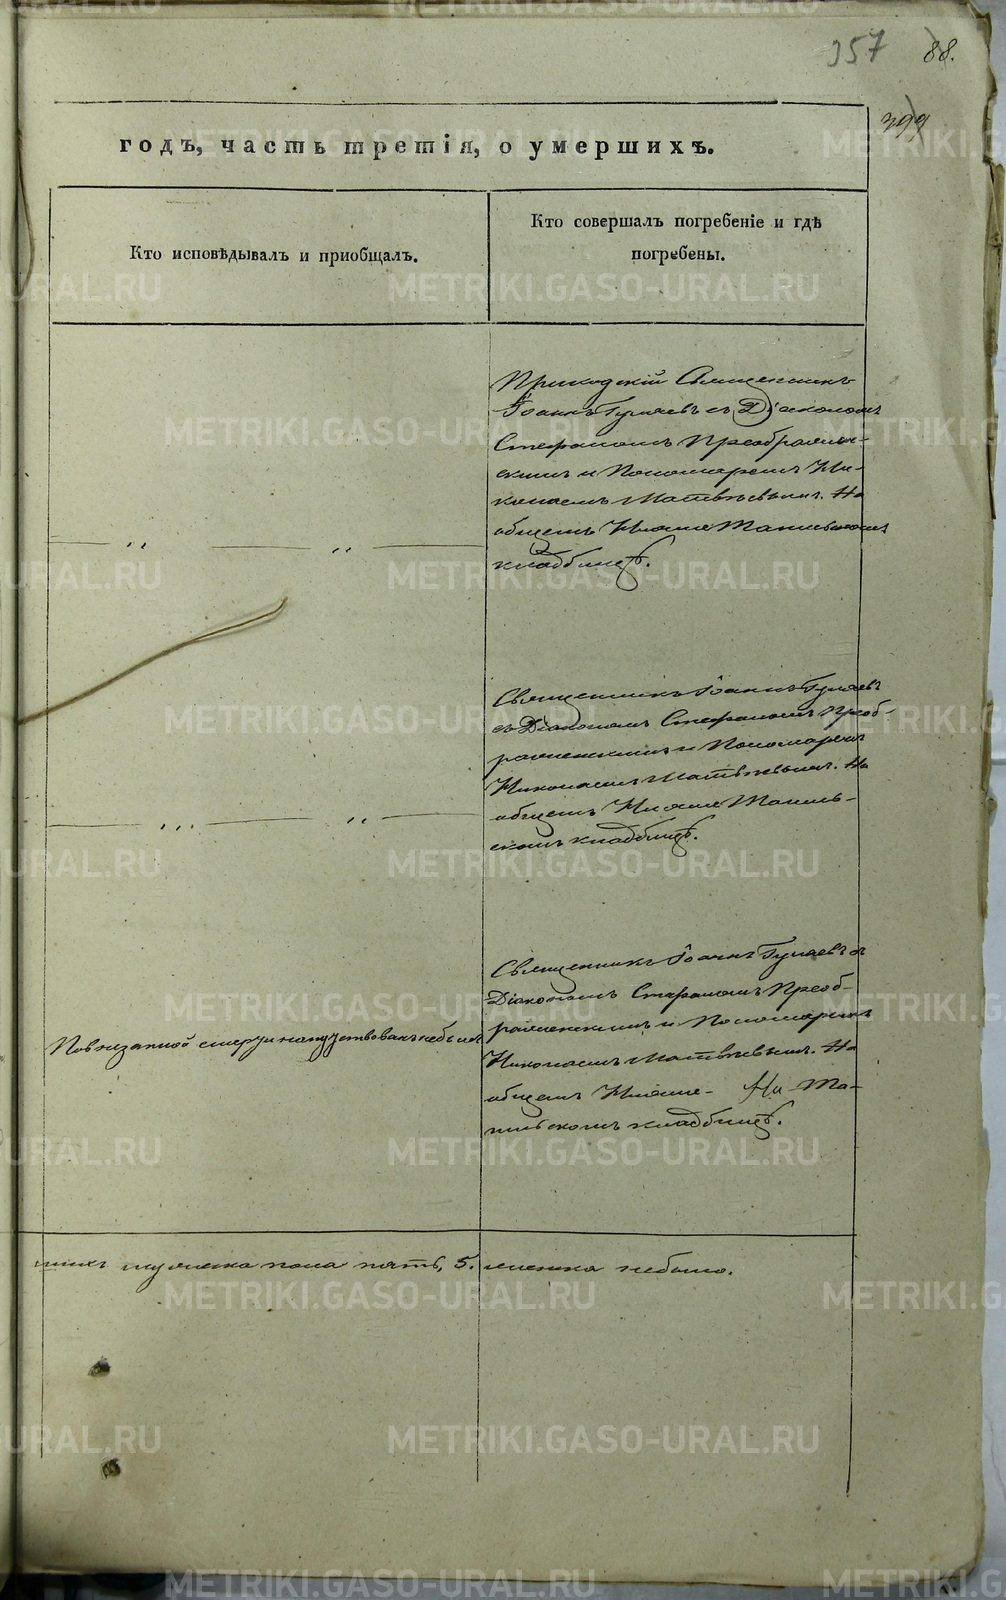 357 88.
399
годъ, часть третія, о умершихъ.
Кто исповѣдывалъ и приобщалъ.
Кто совершалъ погребеніе и гдѣ
погребены.
Приходскій Священникъ
Іоаннъ Гуляевъ съ Діакономъ
Стефаномъ Преображен-
скимъ и Пономаремъ Ни-
колаемъ Матвѣевымъ. На
общемъ Нижне Тагильскомъ
кладбищѣ.
Священникъ Іоаннъ Гуляевъ
съ Діакономъ Стефаномъ Преоб-
раженскимъ и Пономаремъ
Николаемъ Матвѣевымъ. На
общемъ Нижне Тагиль-
скомъ кладбищѣ.
Священникъ Іоаннъ Гуляевъ съ
Діакономъ Стефаномъ Преоб-
раженскимъ и Пономаремъ
По внезапной смерти напутствованъ небылъ
Николаемъ Матвѣевымъ. На
общемъ Нижне- На Та-
гильскомъ кладбищѣ.
шихъ мужеска пола пять, 5. женска небыло.
METRIKI.GASO-URAL.RU